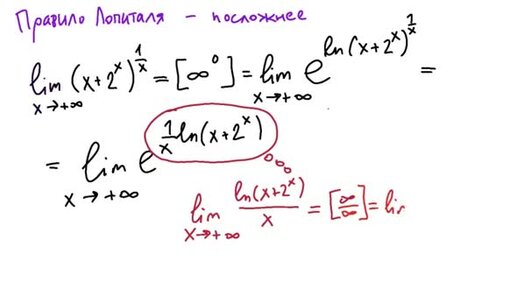 Правило Лопиталя – посложнее
lim x→+∞ (x+2^x)^(1/x) = [∞^0] = lim x→+∞ e^(ln(x+2^x)^(1/x)) =
= lim x→+∞ e^(1/x ln(x+2^x))
lim x→+∞ ln(x+2^x)/x = [∞/∞] = lir